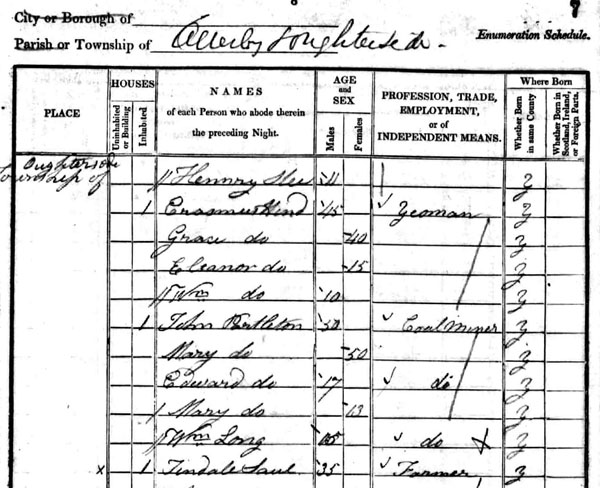 7
City or Borough of
Parish or Township of Ellerby Oughterside
Enumeration Schedule.
PLACE
HOUSES
Uninhabited or Building
Inhabited
NAMES
of each Person who abode therein
the preceding Night.
AGE
and
SEX
Males
Females
PROFESSION, TRADE,
EMPLOYMENT,
or of
INDEPENDENT MEANS.
Where Born
Whether Born in same County
Whether Born in Scotland, Ireland, or Foreign Parts.
Oughterside
Township of
Hennry Slee 11 y
1 Erasmus Hind 45 Yeoman y
Grace do 40 y
Eleanor do 15 y
Wm do 10 y
1 John 50 Coal Miner y
Mary do 50 y
Edward do 17 do y
Mary do 13 y
Wm Long do y
x 1 Tindale Saul 35 Farmer y